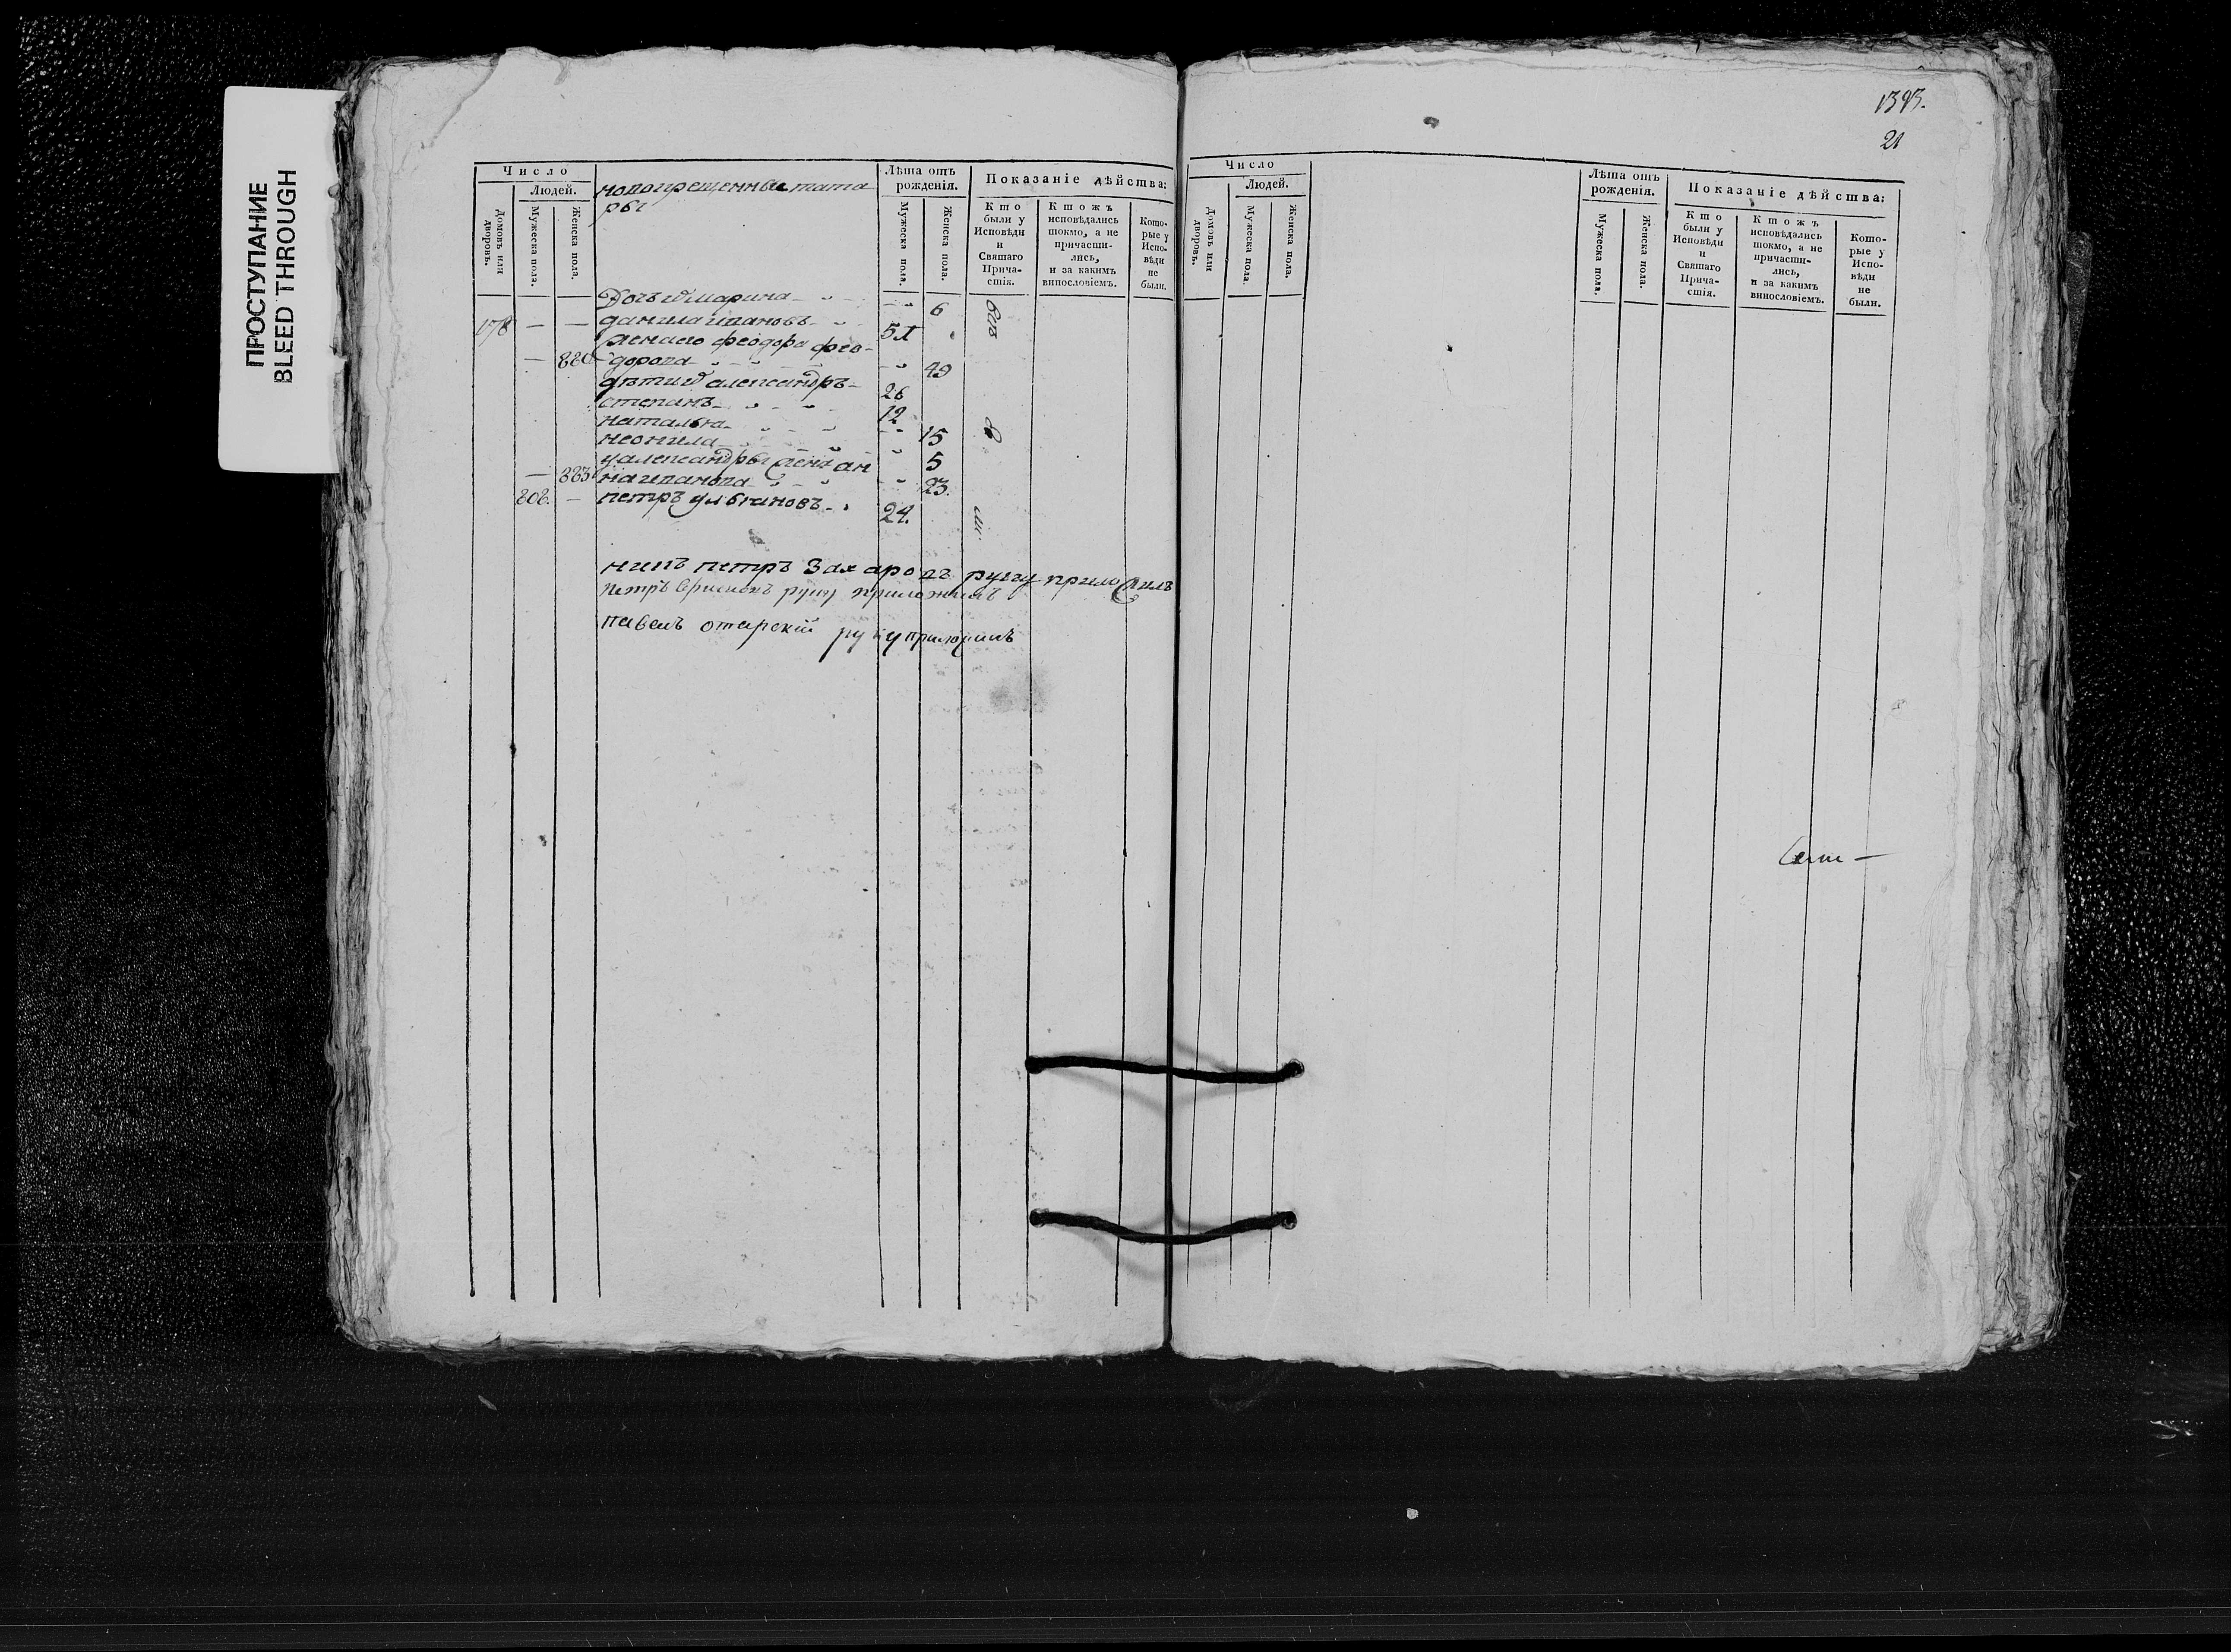 ПРОСТУПАНИЕ
BLEED THROUGH
1393.
21
Число
Людей.
Домовъ или дворовъ.
Мужеска пола.
Женска пола.
новокрещенные тата
ры
Лѣта отъ рожденія.
Мужеска пола.
Женска пола.
Показаніе дѣйства:
Кто были у Исповѣди и Святаго Причастія.
Ктожъ исповѣдались токмо, а не причастились, и за какимъ винословіемъ.
Которые у Исповѣди не были.
Дочь марина 6
178 — — данила ивановъ 51
жена его феодора фео-
— 880 дорова 49
дѣти александръ 26
степанъ 12
наталья 15
неонила 5
у александры жена ан
— 883 на иванова 23.
808. — петръ 24.
петръ Захаровъ руку приложилъ
петръ руку приложилъ
павелъ отарскій руку приложилъ
Число
Людей.
Домовъ или дворовъ.
Мужеска пола.
Женска пола.
Лѣта отъ рожденія.
Мужеска пола.
Женска пола.
Показаніе дѣйства:
Кто были у Исповѣди и Святаго Причастія.
Ктожъ исповѣдались токмо, а не причастились, и за какимъ винословіемъ.
Которые у Исповѣди не были.